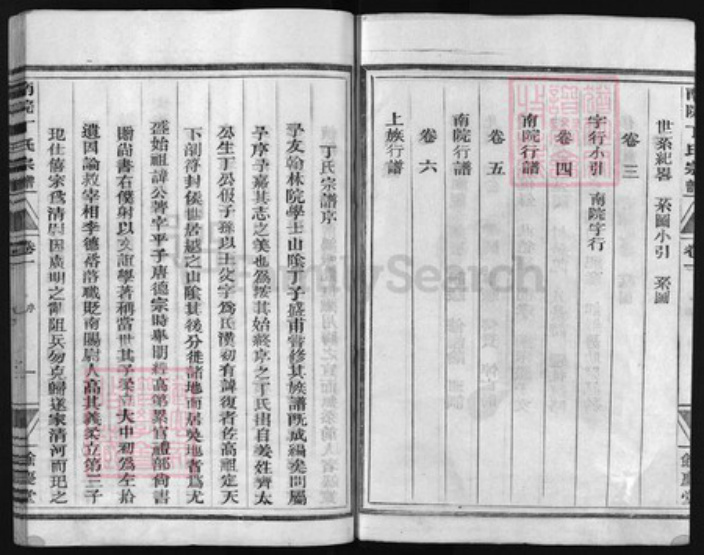 世系紀畧 系圖小引 系圖
卷三
字行小引 南院字行
卷四
南院行譜
卷五
南院行譜
卷六
上族行譜
南院丁氏宗譜 卷一
餘慶堂
丁氏宗譜序
予友翰林院學士山陰丁子盛甫嘗修其族譜既成編矣問屬
予序予嘉其志之美也為按其始終序之丁氏出自姜姓齊太
公生丁公伋子孫以王父字為氏漢初有諱復者佐高祖定天
下剖符封侯世居越之山陰其後分徙諸地而居吳地者為尤
盛始祖諱公著字平子唐德宗時舉明經高第累官禮部尚書
贈尚書右僕射以文誼學著稱當世其子柔立大中初為左拾
遺因論救宰相李德裕落職貶南陽尉人高其義柔立第三子
玘仕僖宗為清尉因廣明之亂阻兵勿克歸遂家清河而玘之
南院丁氏宗譜 卷一 序 一
FamilySearch